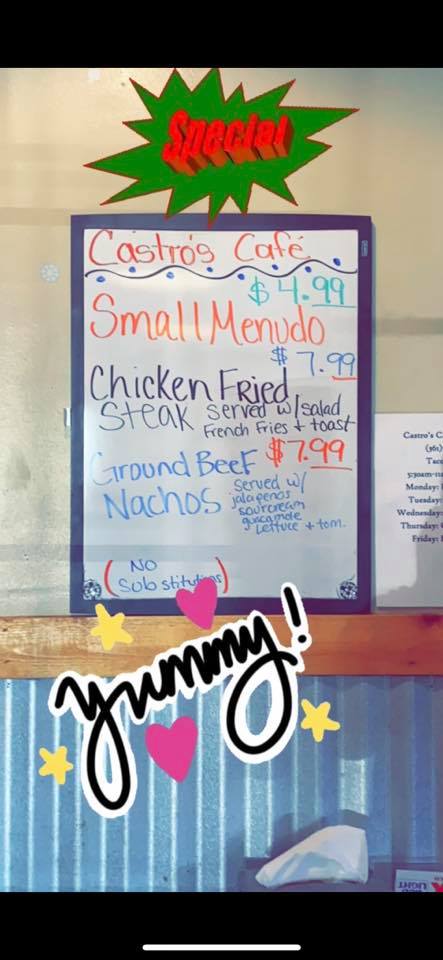 Special
Castro's Café
$4.99
Small Menudo
$7.99
Chicken Fried
Steak served w/salad
French Fries + toast
$7.99
Ground Beef
Nachos served w/
jalapenos
sourcream
guacamole
Lettuce + tom.
(No
Substitutions)
Castro's C
(361)
Taco
5:30am-11
Monday:
Tuesday:
Wednesday:
Thursday:
Friday:
yummy!
LIGHT